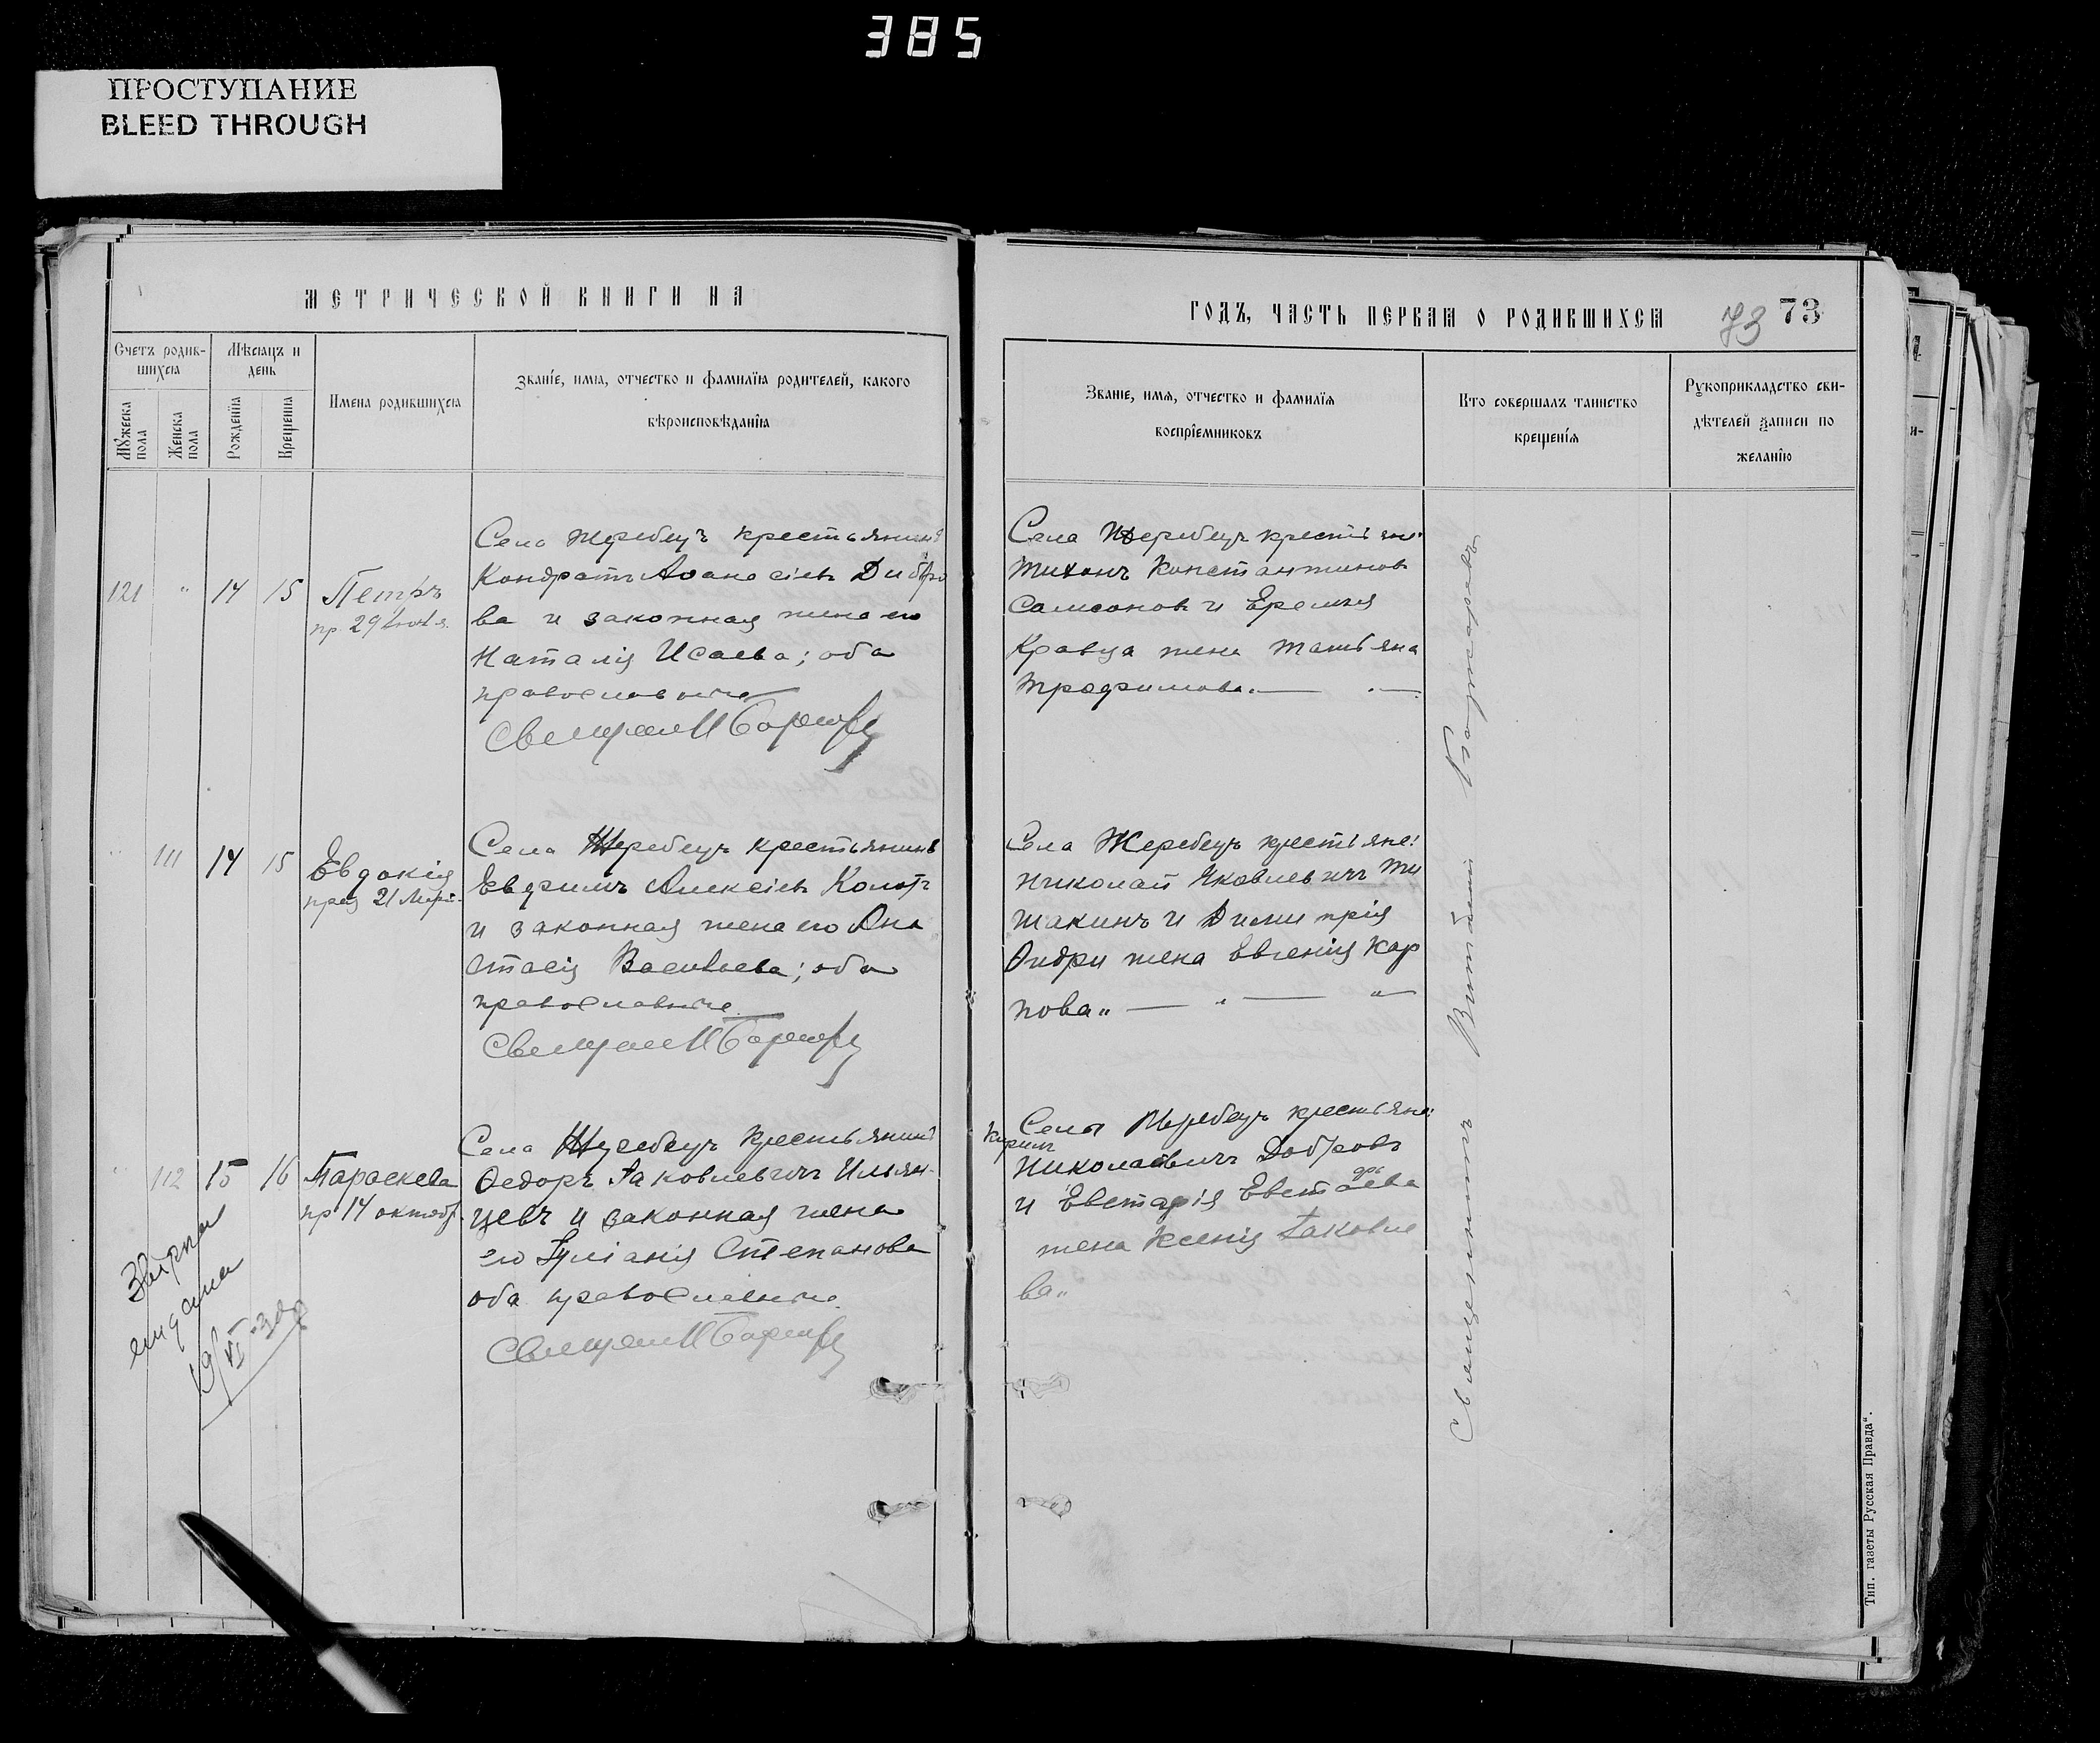 385
ПРОСТУПАНИЕ
BLEED THROUGH
МЕТРИЧЕСКОЙ КНИГИ НА
ГОДЪ, ЧАСТЬ ПЕРВАЯ О РОДИВШИХСЯ
73 73
Счетъ родив-
шихся
Мужеска пола
Женска пола
Мѣсяцъ и
день
Рожденїя
Крещенїя
Имена родившихся
Званїе, имя, отчество и фамилїя родителей, какого
вѣроисповѣданїя
Званїе, имя, отчество и фамилїя
воспрїемниковъ
Кто совершалъ таинство
крещенїя
Рукоприкладство сви-
дѣтелей записи по
желанїю
121 " 14 15
Петръ
пр. 29
Села Жеребецъ крестьянинъ
Кондратъ Аѳанасіевъ Дибро
ва и законная жена его
Наталія Исаева; оба
православные
Села Жеребецъ крестьяне:
Тихонъ Константиновъ
Самсоновъ и Еремія
Кравца жена Татьяна
Трофимова.
111 14 15
Евдокія
21
Села Жеребецъ крестьянинъ
Евфимъ Алексіевъ
и законная жена его Ана
стасія Васильева; оба
православные
Села Жеребецъ крестьяне:
Николай Яковлевичъ Ти
шакинъ и Димитрія
жена Евгенія Кар
пова"
112 15 16
Параскева
пр 14 октябр.
Села Жеребецъ крестьянинъ
Ѳедоръ Іаковлевичъ Ильян-
цевъ и законная жена
его Іуліанія Степанова
оба православные
Села Жеребецъ крестьяне:
Николаевичъ Добровъ
и
жена Ксенія Іаковле
ва"
Священникъ Виталий
Тип. газеты Русская Правда".